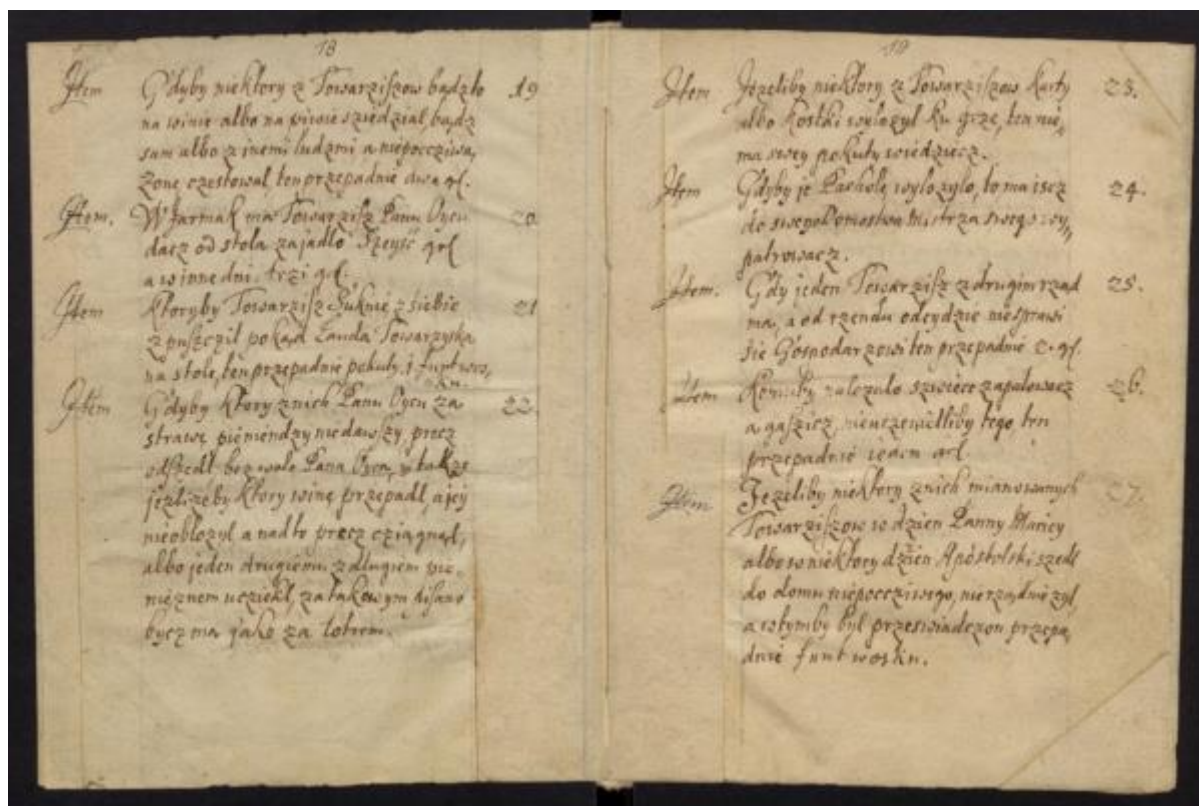 18
Item Gdyby niektory z Towarziszow bądzto 19
na winie albo na piwie sziedzial, bądz
sam albo z inemi ludzmi a niepoccziwą
zonę czestowal ten przepadnie dwa gł.
Item. W Jarmak ma Towarzisz Panu Oycu 20
dacz od stola za jadlo Szeysć grł
a w inne dni, trzi grł.
Item Ktoryby Towarzisz Suknie z siebie 21
zpusczil pokąd Lauda Towarzyska
na stole, ten przepadnie pokuty, j funt wos,
ku.
Item Gdyby ktory z nich Panu Oycu za 22.
strawę piemiendzy niedawszy, precz
odszedl bez wole Pana Oyca, y także
jezlizeby ktory winę przepadl, a jey
nieoblozyl a nadto precz cziągnął,
albo jeden drugiemu z dlugiem pie,
nieznem ucziekl, za takowym pisano
bycz ma jako za lotrem.
19
Item Jezeliby niektory z Towarziszow karty 23.
albo Kostki wylozyl ku grze, ten nié,
ma swey pokuty wiedziecz.
Item Gdyby je Pacholę wylozylo, to ma iscz 24.
do swego Pomostwa Mistrza swego wy,,
patrowacz.
Item. Gdy jeden Towarzisz z drugim rząd 25.
ma, a od rzendu odeydzie niesprawi
sie Gospodarzowi ten przepadnie 2. gł.
Item Komuby nalezalo szwiece zapalowacz 26.
a gaszicz, nieuczeniłliby tego, ten
przepadnie ieden grł.
Item Jezeliby niektory z nich mianowanych 27.
Towarziszow w dzien Panny Mariey
albo w niektory dzien Apostolski szedl
do domu niepoccziwego, nierządnie zyl,
a w tymby byl przeswiadczon, przepa,
dnie funt wosku.